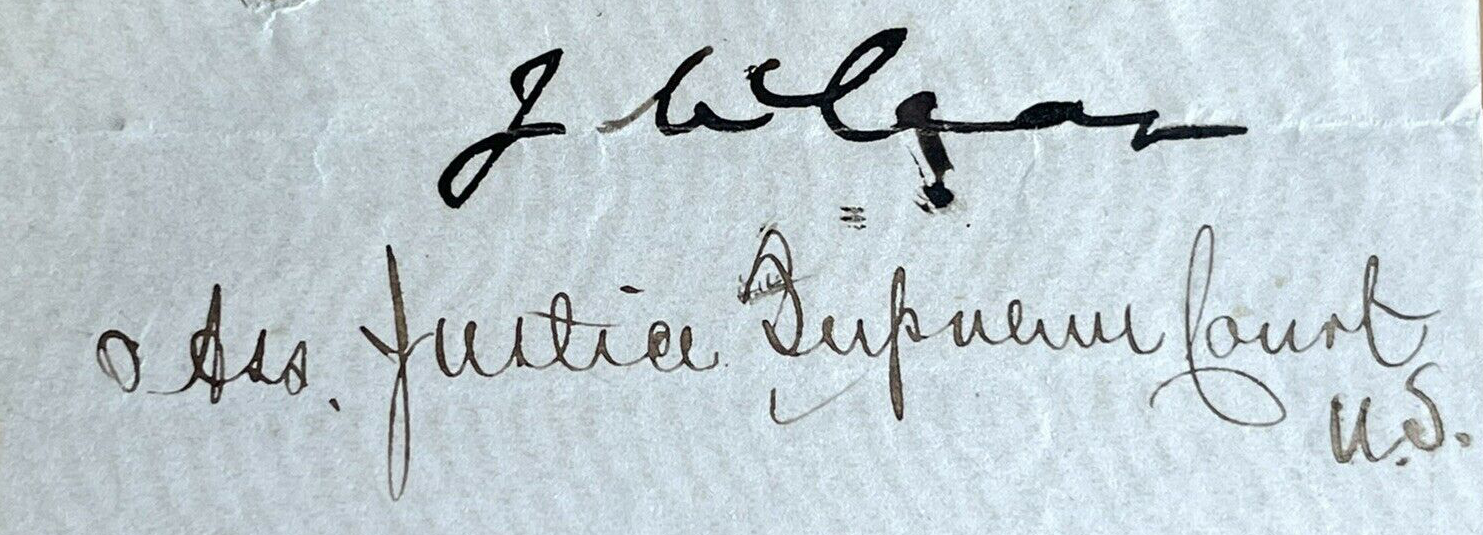 J McLean
Ass. Justice Supreme Court
U.S.